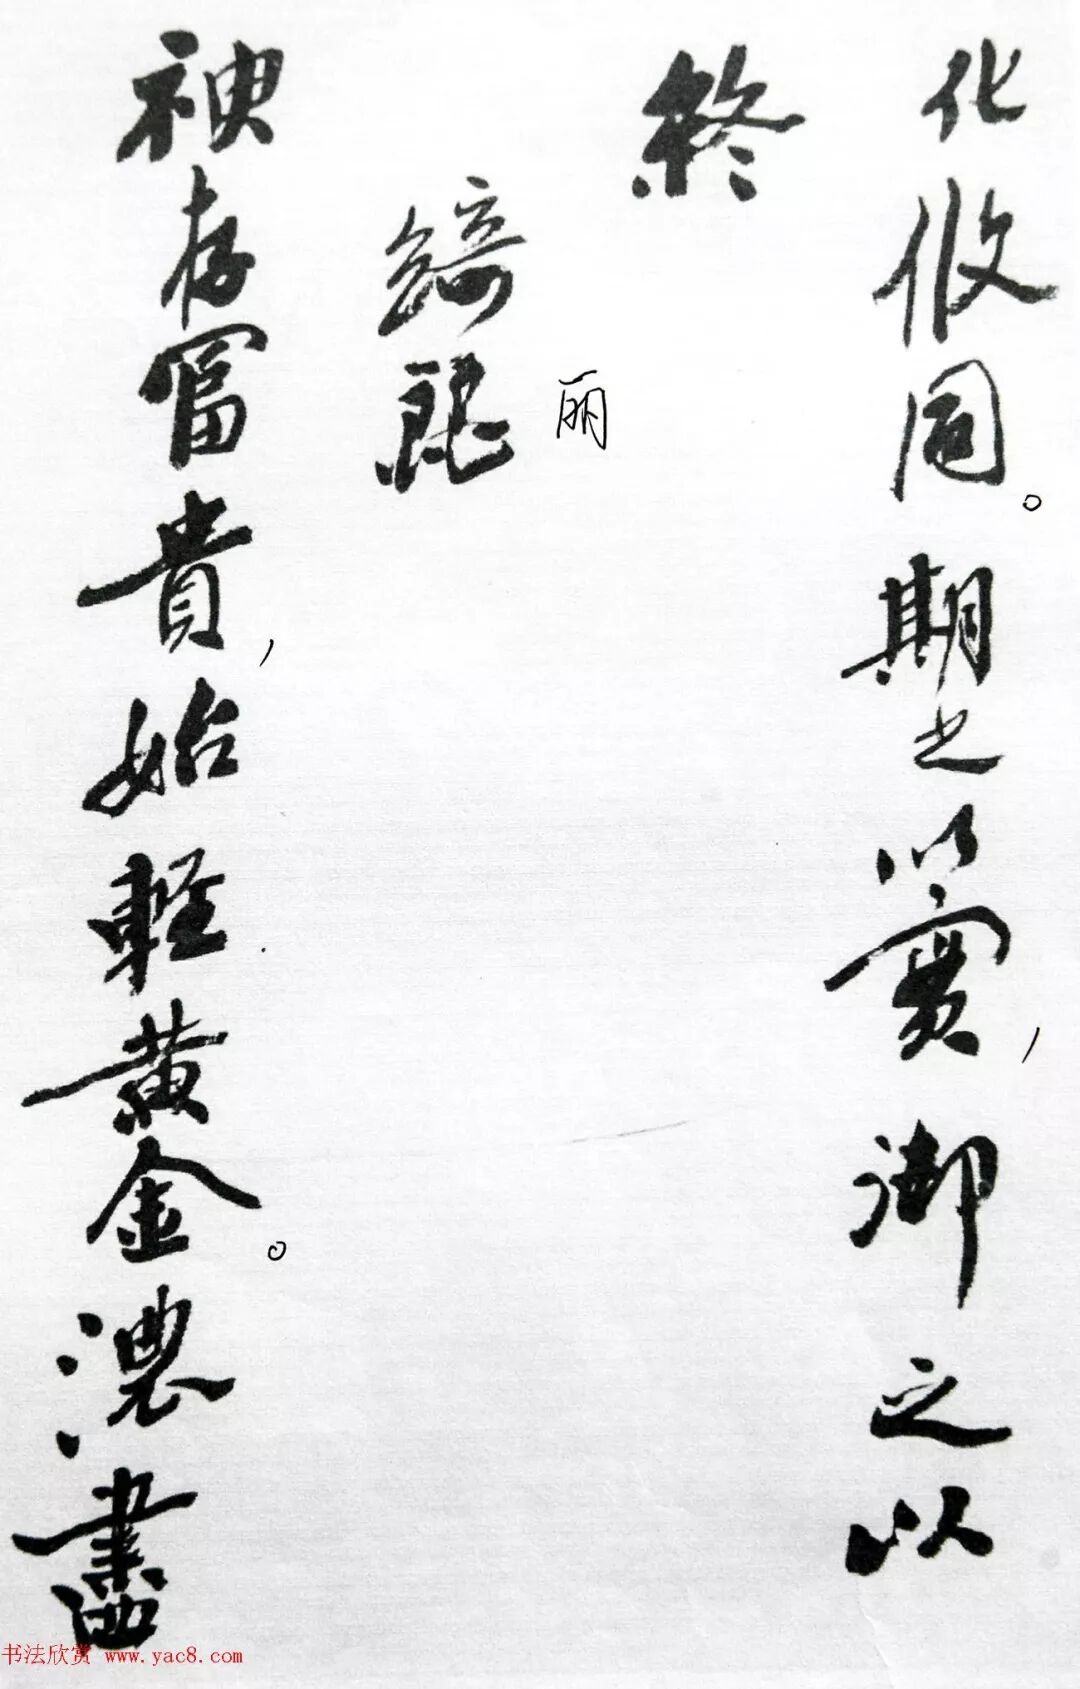 化攸同。期之以實，御之以
終
丽
綺麗
神存富貴，始輕黄金。濃盡
书法欣赏 www.yac8.com